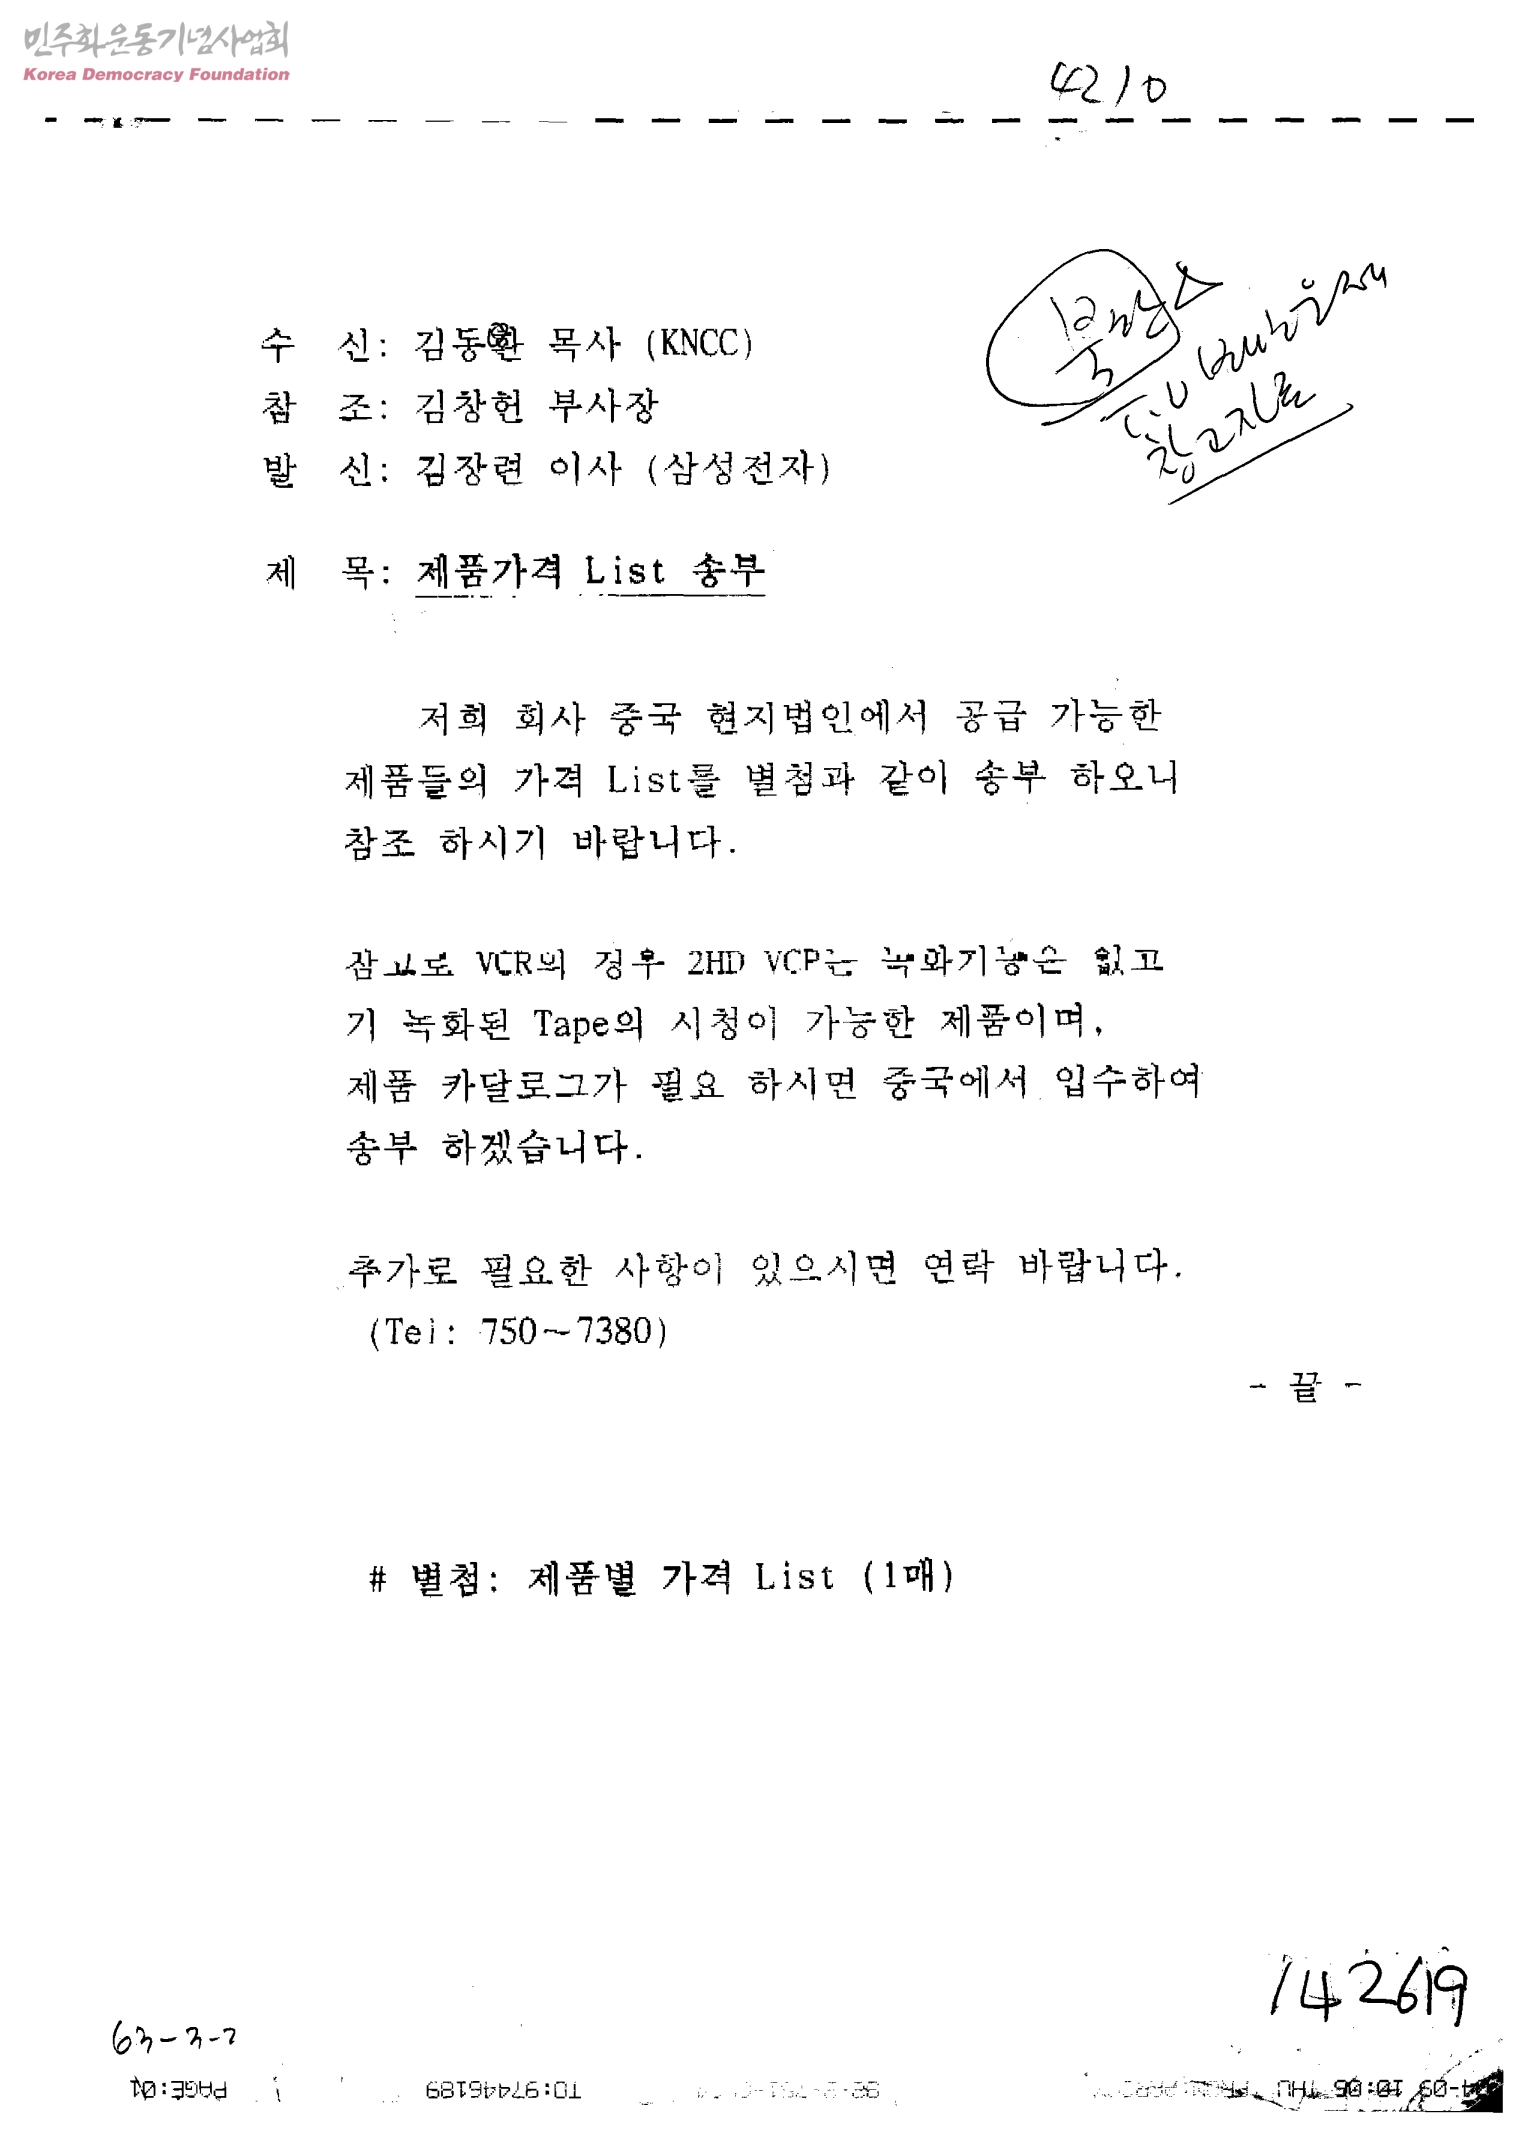 민주화운동기념사업회
Korea Democracy Foundation
4210
수 신: 김동완 목사 (KNCC)
참 조: 김창헌 부사장
발 신: 김장련 이사 (삼성전자)
제 목: 제품가격 List 송부
참고자료
저희 회사 중국 현지법인에서 공급 가능한
제품들의 가격 List를 별첨과 같이 송부 하오니
참조 하시기 바랍니다.
참고로 VCR의 경우 2HD VCP는 녹화기능은 없고
기 녹화된 Tape의 시청이 가능한 제품이며,
제품 카달로그가 필요 하시면 중국에서 입수하여
송부 하겠습니다.
추가로 필요한 사항이 있으시면 연락 바랍니다.
(Tel: 750~7380)
- 끝 -
# 별첨: 제품별 가격 List (1매)
142619
63-3-2
PAGE:01 TO:97446189 THU 10:06